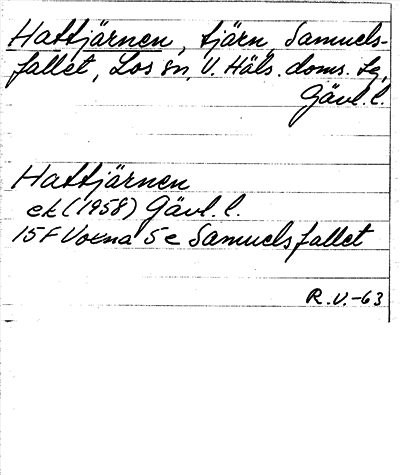 Hattjärnen, tjärn, Samuels-
fallet, Los sn, V. Häls. doms. tg,
Gävl. l.
Hattjärnen
ek (1958) Gävl. l.
15F Voxna 5c Samuelsfallet
R.V.-63